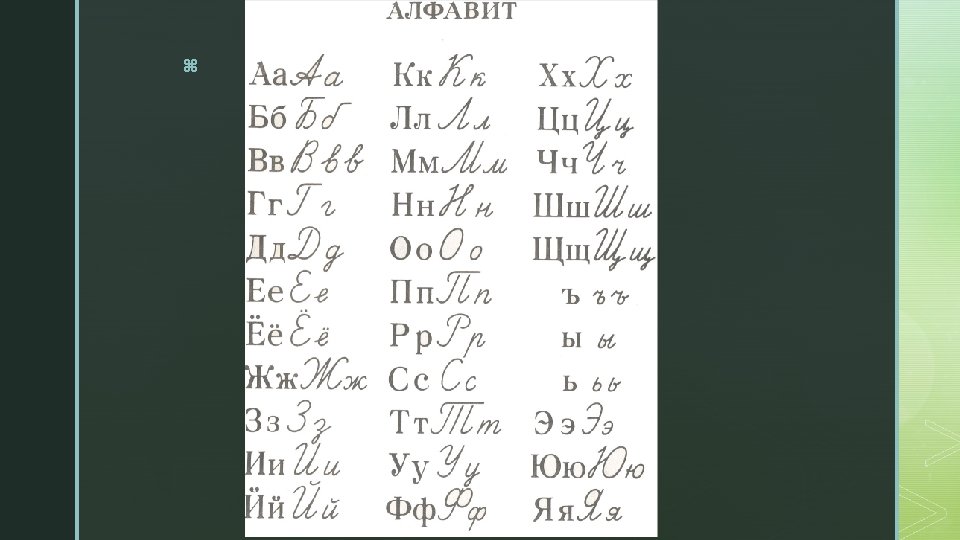 АЛФАВИТ
⌘
Аа Аа Кк Кк Хх Хх
Бб Бб Лл Лл Цц Цц
Вв Ввв Мм Мм Чч Чч
Гг Гг Нн Нн Шш Шш
Дд Дд Оо Оо Щщ Щщ
Ее Ее Пп Пп ъ ъъ
Ёё Ёё Рр Рр ы ы
Жж Жж Сс Сс ь ьь
Зз Зз Тт Тт Ээ Ээ
Ии Ии Уу Уу Юю Юю
Йй Йй Фф Фф Яя Яя